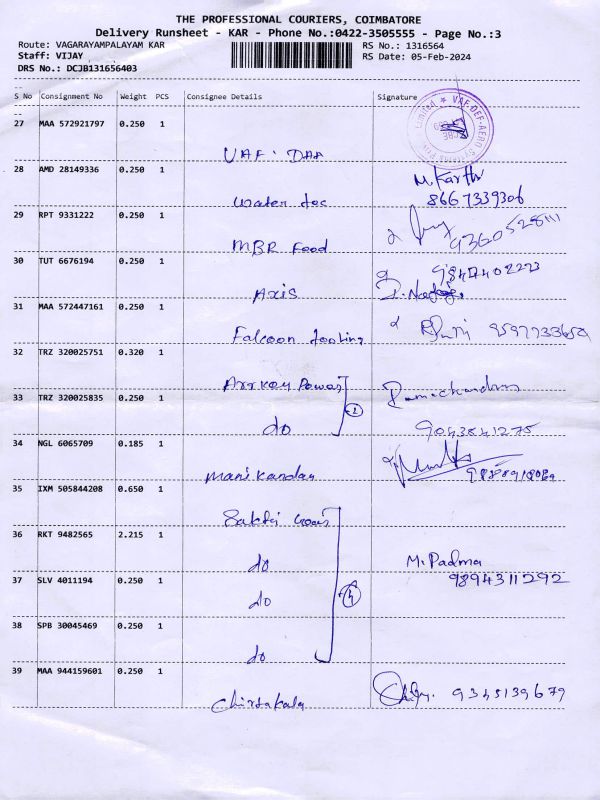 THE PROFESSIONAL COURIERS, COIMBATORE
Delivery Runsheet - KAR - Phone No.:0422-3505555 - Page No.:3
Route: VAGARAYAMPALAYAM KAR RS No.: 1316564
Staff: VIJAY RS Date: 05-Feb-2024
DRS No.: DCJB131656403
S No Consignment No Weight PCS Consignee Details Signature
27 MAA 572921797 0.250 1
28 AMD 28149336 0.250 1 M. Karthi
Water tec 8667339306
29 RPT 9331222 0.250 1
MBR Food
30 TUT 6676194 0.250 1
Axis
31 MAA 572447161 0.250 1
Falcoon tooling
32 TRZ 320025751 0.320 1
Arrkay Power Ramachandran
33 TRZ 320025835 0.250 1 2
do 9043841275
34 NGL 6065709 0.185 1
Manikandan
35 IXM 505844208 0.650 1
Sakthi
36 RKT 9482565 2.215 1
do M. Padma
37 SLV 4011194 0.250 1 9894311292
do 4
38 SPB 30045469 0.250 1
do
39 MAA 944159601 0.250 1
9345139679